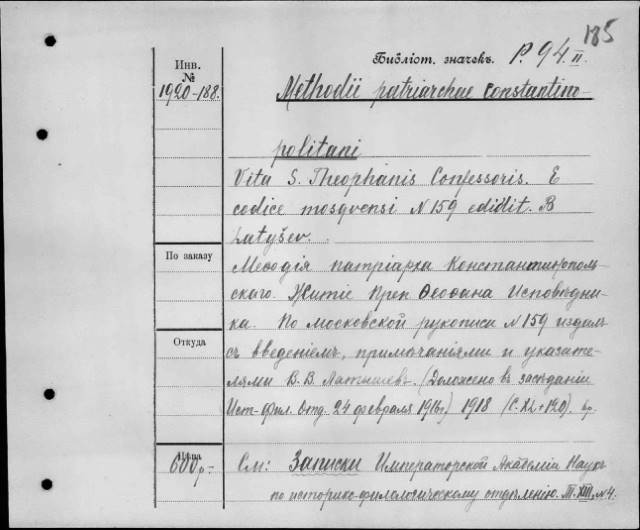 185
Библіот. значекъ. P. 94. II.
Инв.
№
1920-188.
Methodii patriarchae Constantino-
politani
Vita S. Theophanis Confessoris. E
codice mosqvensi N 159 edidit. B
Latyšev.
По заказу
Меѳодія патріарха Константинополь-
скаго. Житіе Преп Ѳеофана Исповѣдни-
ка. По Московской рукописи N 159 издалъ
Откуда
съ введеніемъ, примѣчаніями и указате-
лями В. В. Латышев. (Доложено въ засѣданіи
Ист-Фил. Отд. 24 февраля 1916г) 1918 (С. XL+120). бр.
Цѣна
600р-
См: Записки Императорской Академіи Наукъ
по историко-филологическому отдѣленію. T. XIII, N 4.